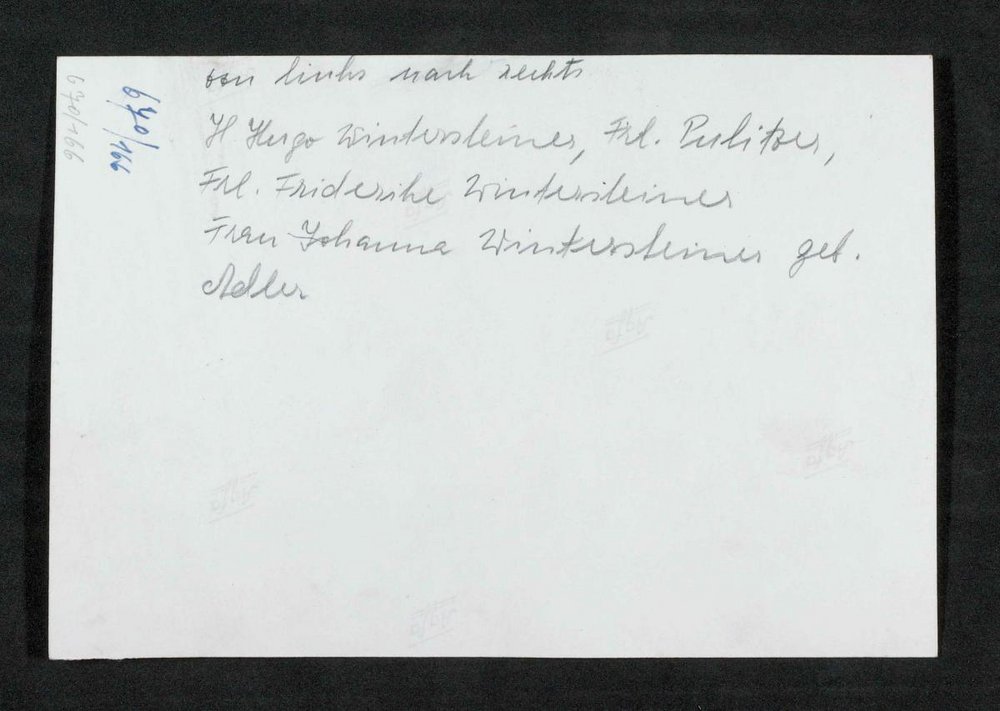 von links nach rechts
H Hugo Wintersteiner, Frl. Pulitzer,
Frl. Friderike Wintersteiner
Frau Johanna Wintersteiner geb.
Adler
670/166
670/166